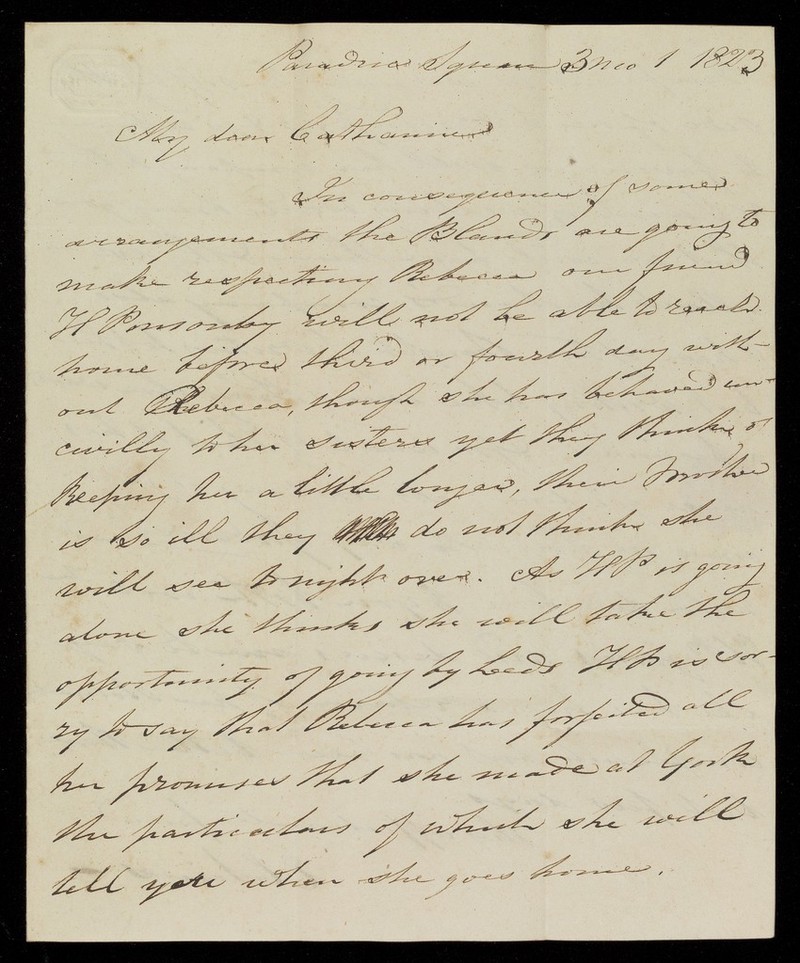 Paradise Square 3 mo 1 1823
My dear Catharine
In consequence of some
arrangements the Blands are going to
make respecting Rebecca our friend
H Ponsonby will not be able to reach
home before third or fourth day with-
out Rebecca, though she has behaved un-
civilly to her sisters yet they think of
keeping her a little longer, their Mother
is so ill they do not think she
will see tonight over. As HP is going
alone she thinks she will take the
opportunity of going by Leeds HP is sor-
ry to say that Rebecca has forfeited all
her promises that she made at York
the particulars of which she will
tell you when she goes home.